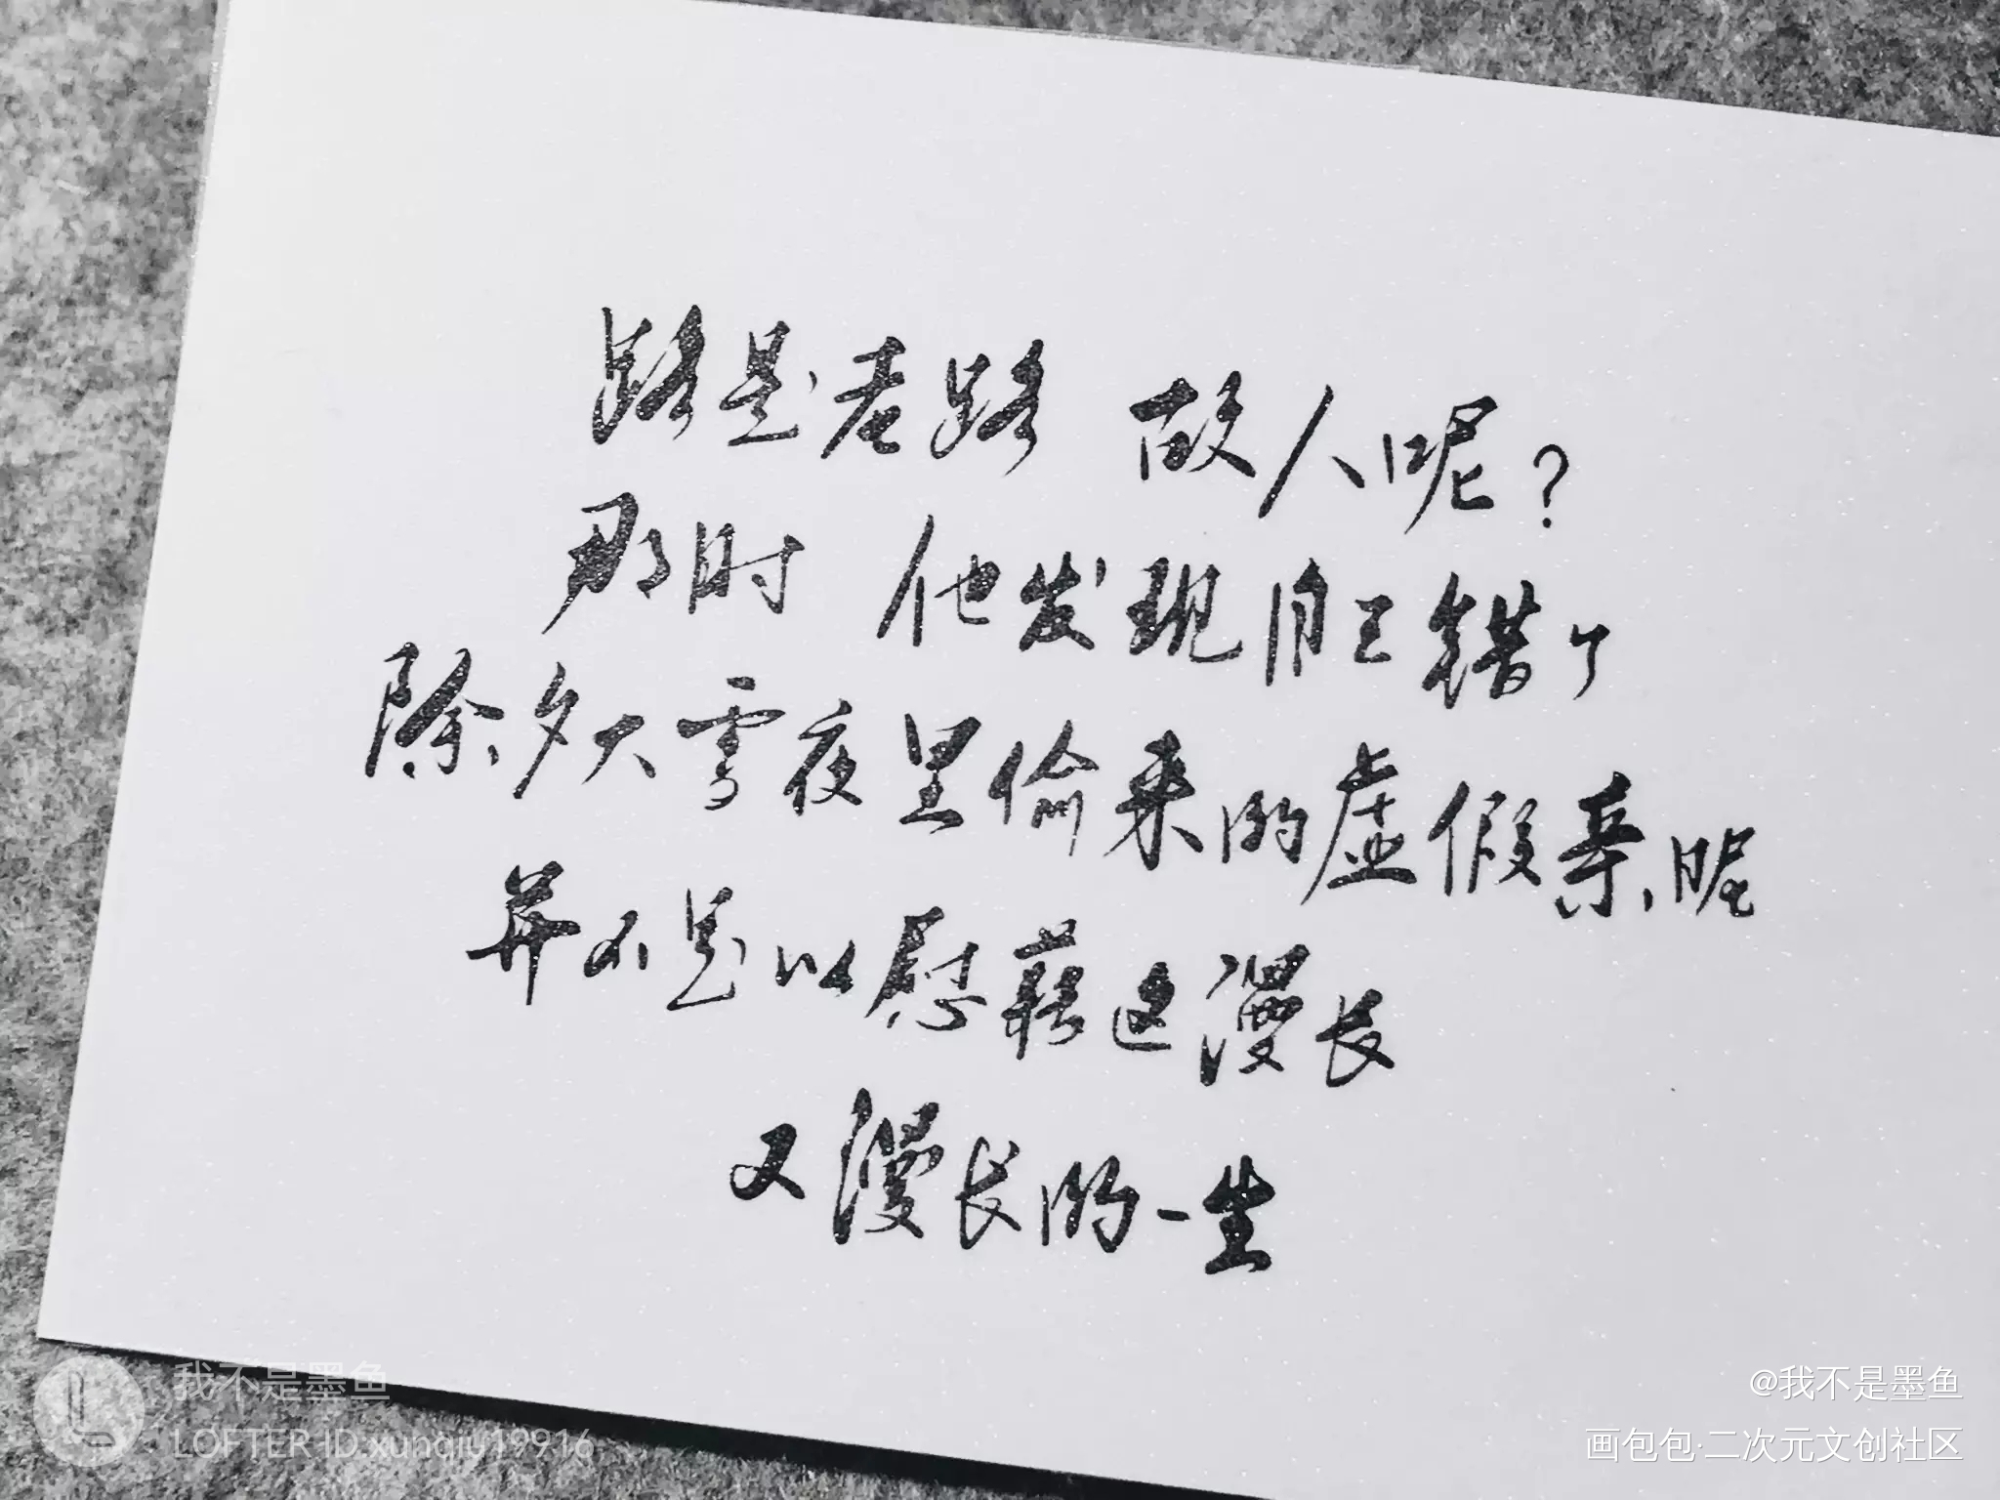 路是老路 故人呢？
那时 他发现自己错了
除夕大雪夜里偷来的虚假亲昵
并不足以慰藉这漫长
又漫长的一生
我不是墨鱼
LOFTER ID:xunqiy19916
@我不是墨鱼
画包包·二次元文创社区